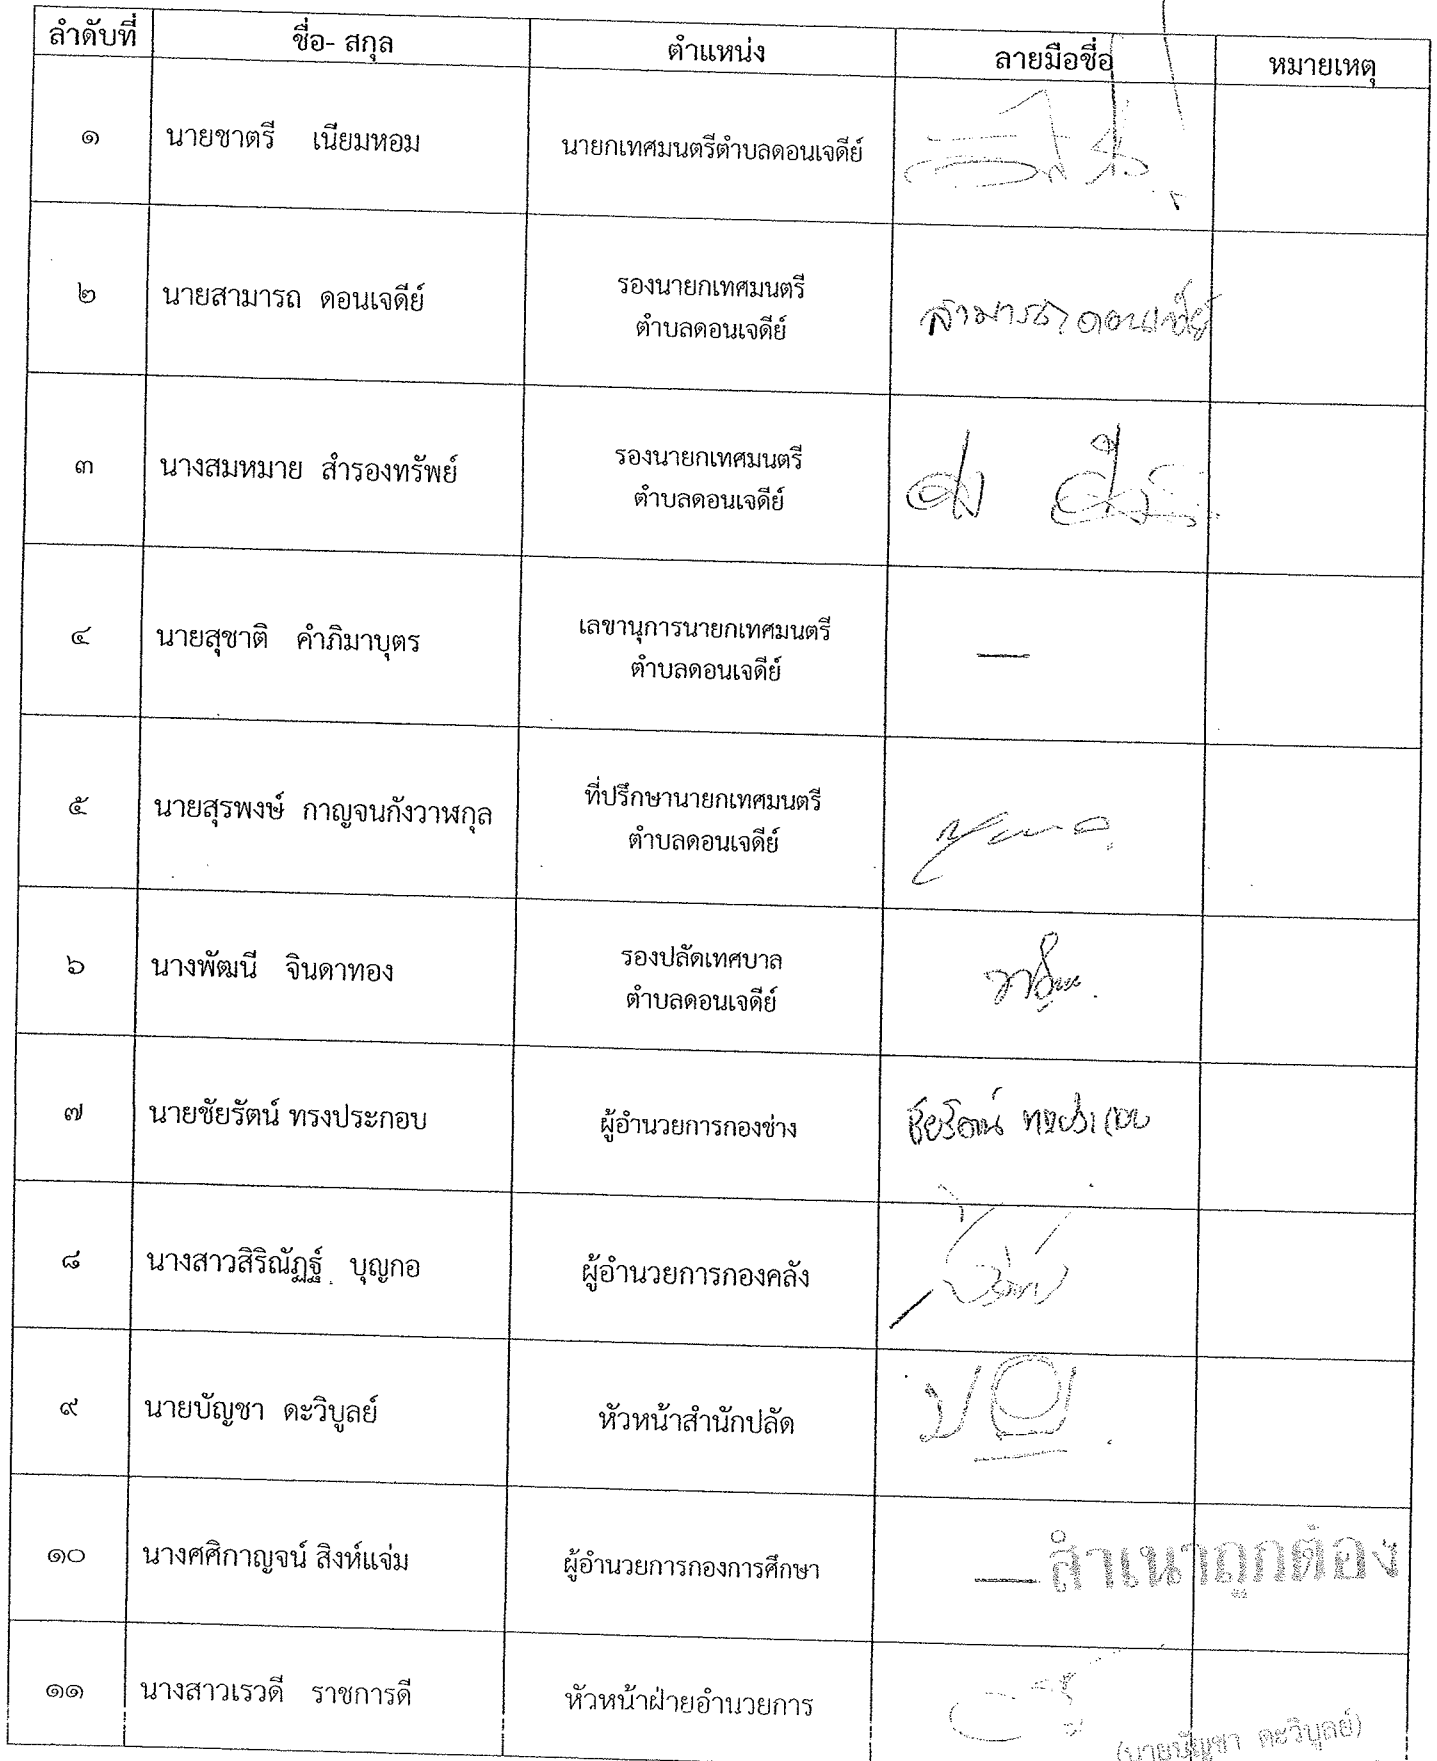 ลำดับที่ ชื่อ- สกุล ตำแหน่ง ลายมือชื่อ หมายเหตุ
๑ นายชาตรี เนียมหอม นายกเทศมนตรีตำบลดอนเจดีย์
๒ นายสามารถ ดอนเจดีย์ รองนายกเทศมนตรี
ตำบลดอนเจดีย์ สามารถ ดอนเจดีย์
๓ นางสมหมาย สำรองทรัพย์ รองนายกเทศมนตรี
ตำบลดอนเจดีย์
๔ นายสุชาติ คำภิมาบุตร เลขานุการนายกเทศมนตรี
ตำบลดอนเจดีย์ —
๕ นายสุรพงษ์ กาญจนกังวาฬกุล ที่ปรึกษานายกเทศมนตรี
ตำบลดอนเจดีย์
๖ นางพัฒนี จินดาทอง รองปลัดเทศบาล
ตำบลดอนเจดีย์
๗ นายชัยรัตน์ ทรงประกอบ ผู้อำนวยการกองช่าง ชัยรัตน์ ทรงประกอบ
๘ นางสาวสิริณัฏฐ์ บุญกอ ผู้อำนวยการกองคลัง
๙ นายบัญชา ตะวิบูลย์ หัวหน้าสำนักปลัด
๑๐ นางศศิกาญจน์ สิงห์แจ่ม ผู้อำนวยการกองการศึกษา — สำเนาถูกต้อง
๑๑ นางสาวเรวดี ราชการดี หัวหน้าฝ่ายอำนวยการ
(นายบัญชา ตะวิบูลย์)